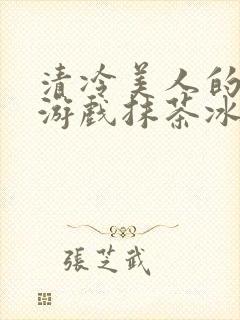 清冷美人的
游戏抹茶冰
張芝武